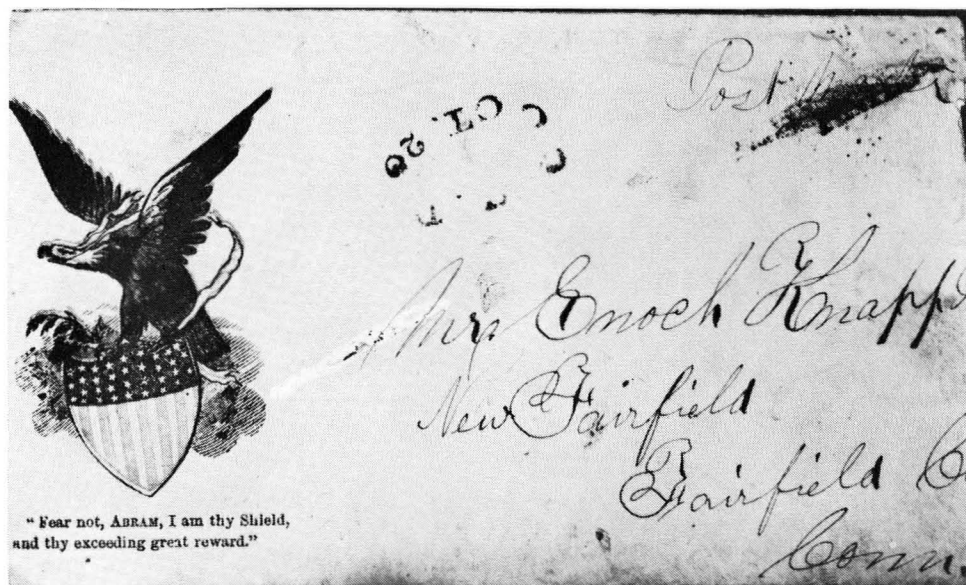 Post
OCT. 20
Mrs Enoch Knapp
New Fairfield
Fairfield
Conn.
"Fear not, ABRAM, I am thy Shield,
and thy exceeding great reward."